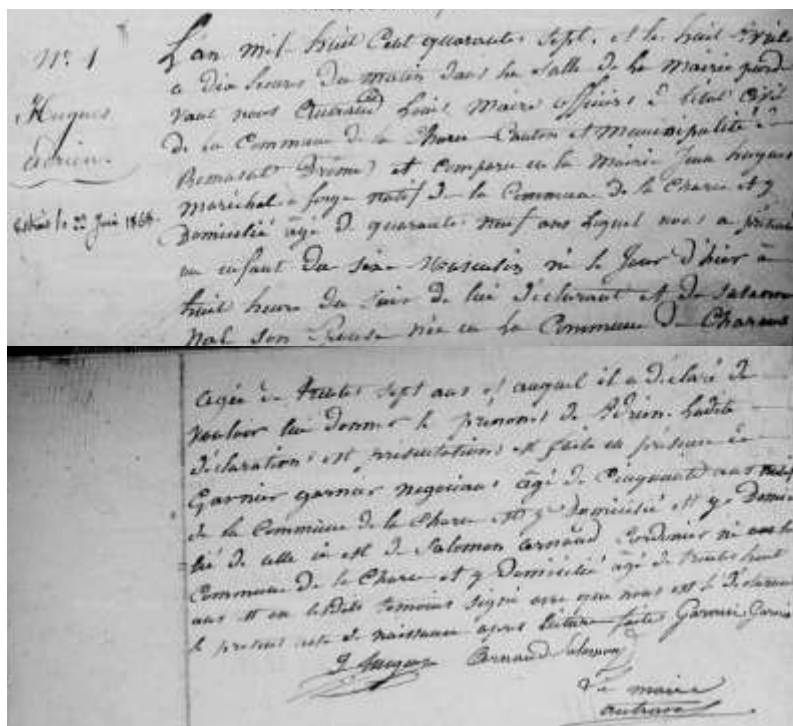 N° 1
Hugues
Adrien
L'an mil huit Cent quarante sept, et le huit Avril
a dix heures du matin dans la Salle de la Mairie pard
vant nous Louis Maire officier de l'état Civil
de la Commune de la Charce Canton et municipalité de
Remusat Drôme) et comparu en la Mairie Jean hugues
Maréchal a forge natif de la Commune de la Charce et y
Domicilié âgé de quarante neuf ans lequel nous a présenté
un enfant du sexe Masculin né le Jour d'hier à
huit heure du Soir de lui déclarant et de
son Epouse née en la Commune de
agée de trente sept ans et auquel il a déclaré de
vouloir lui donner le prenoms de Adrien. Ladite
déclaration est présentations est faite en présence de
Garnier garnier negociant âgé de Cinquante ans natif
de la Commune de la Charce et y domicilié et y Domici
lié de celle ci et de Salomon arnaud Cordonier né en la
Commune De la Charce et y Domicilié âgé de trente huit
ans et ont lesdits temoins Signé avec nous est le déclarant
le present acte de naissance apres lecture faite Garnier Garnier
J hugues Arnaud Salomon
Le maire